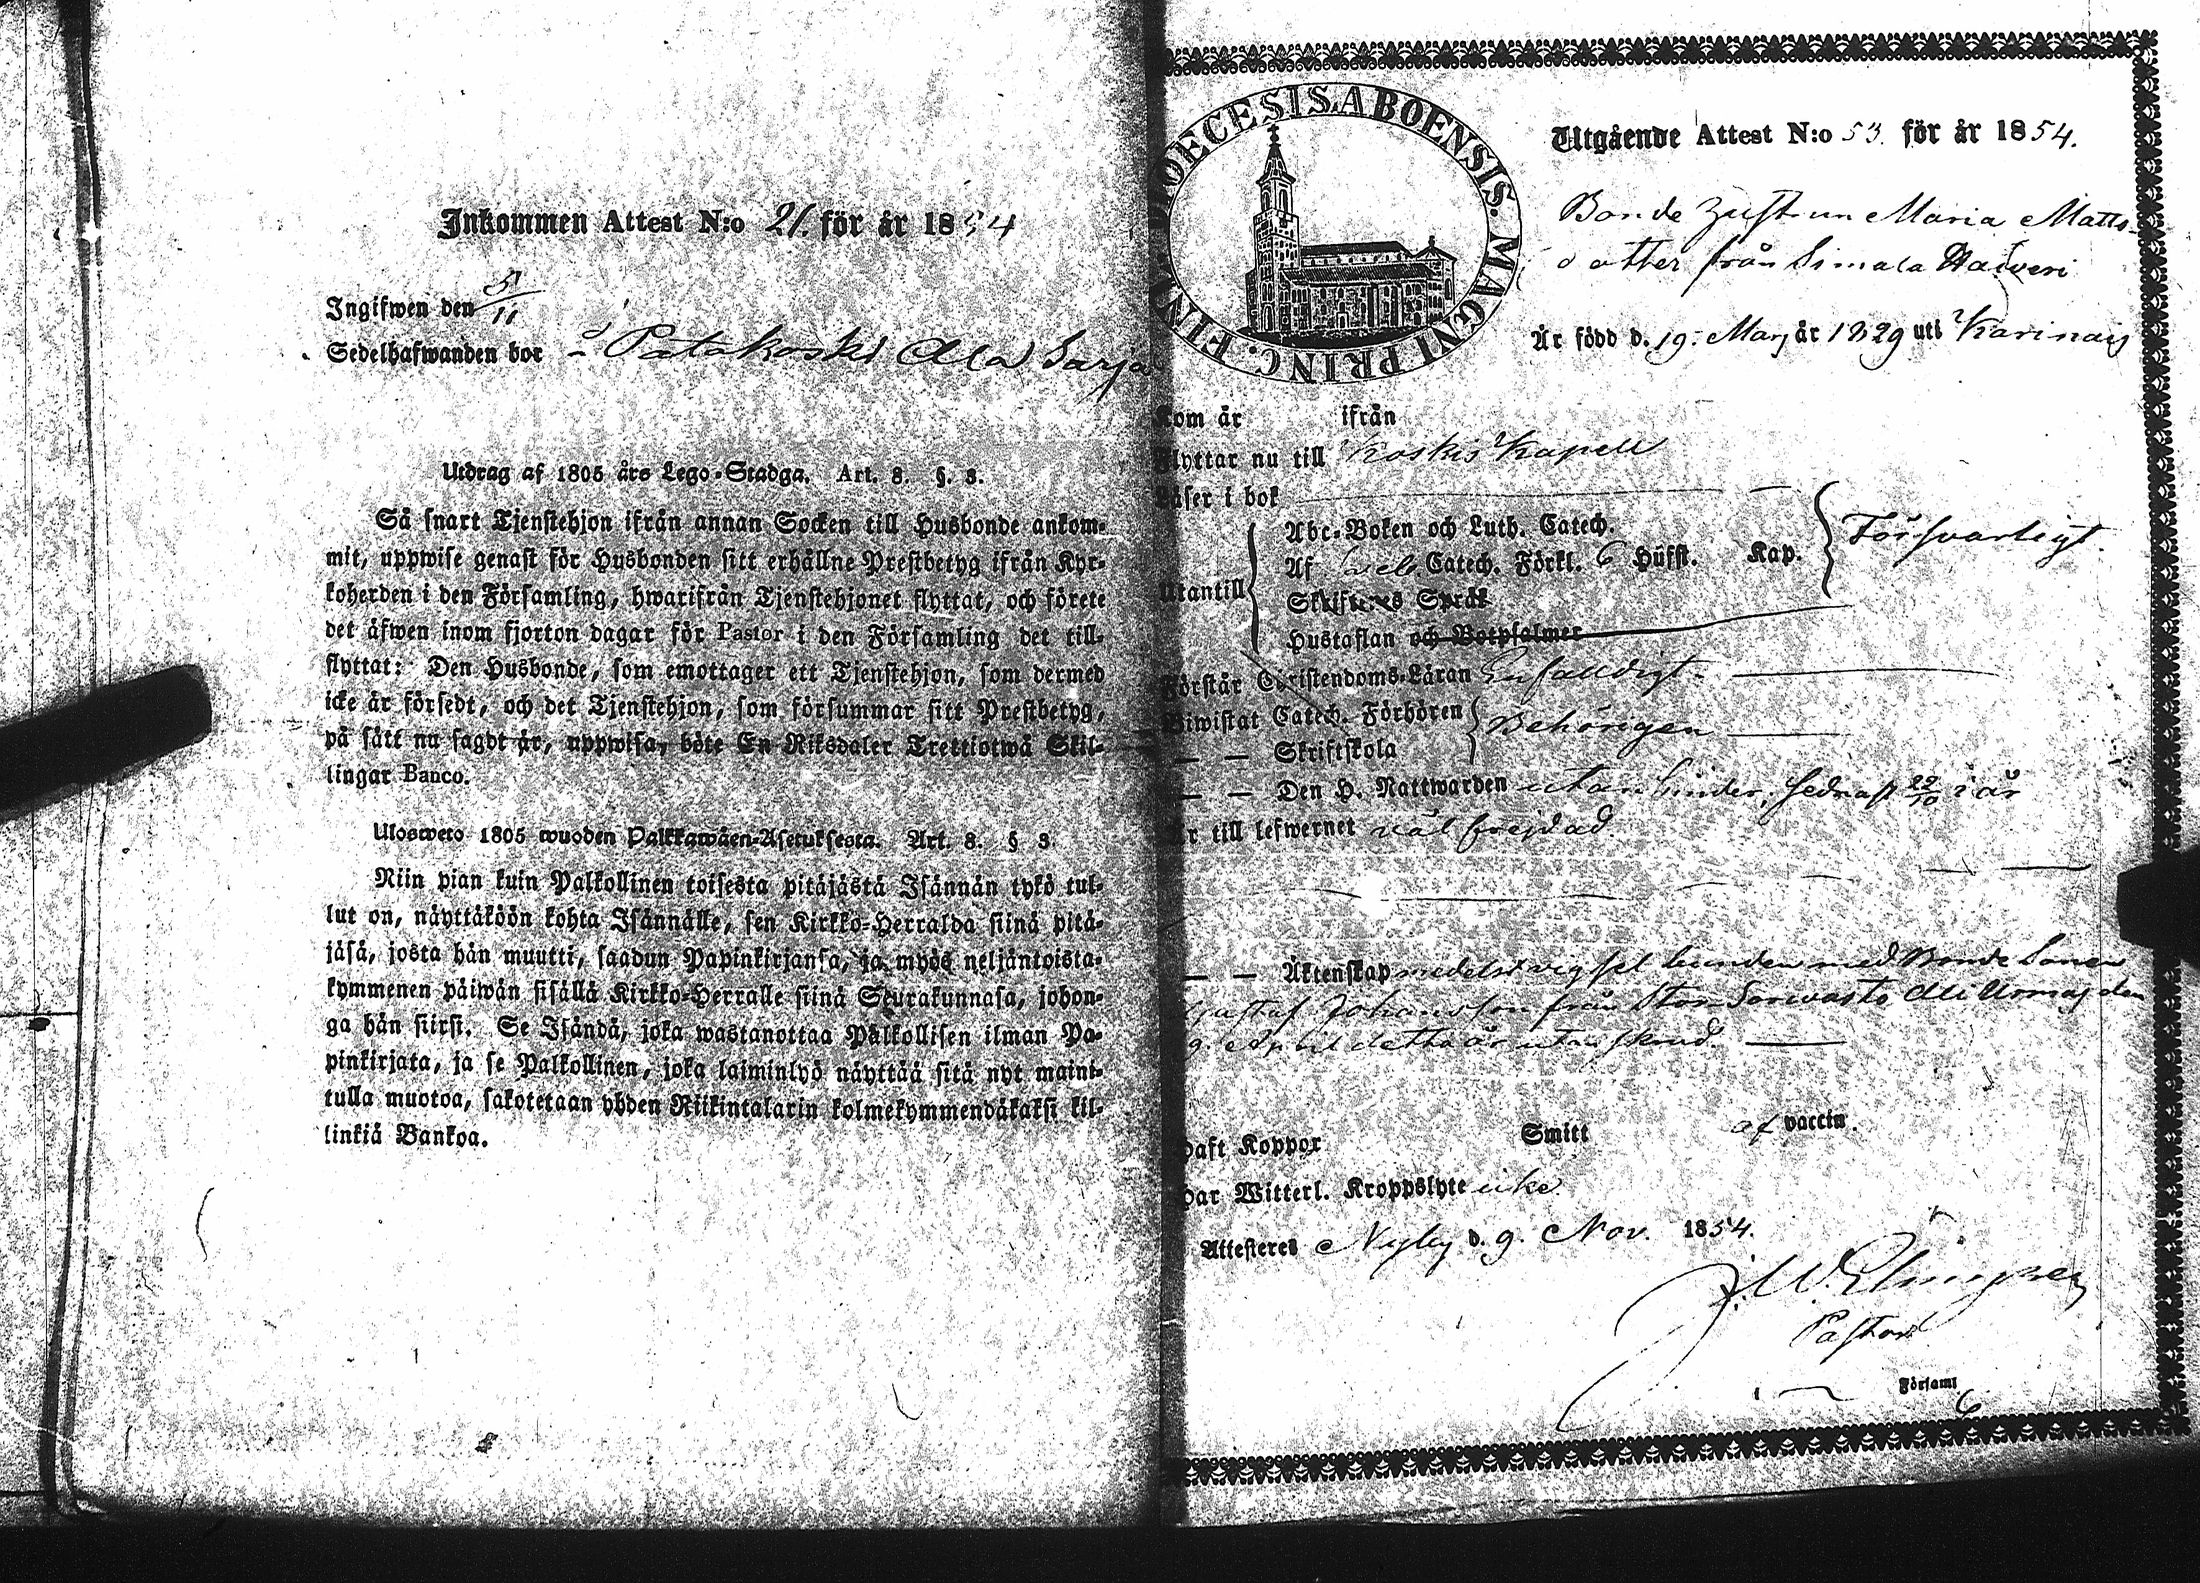 Inkommen Attest N:o 21. för år 1854
Ingifwen den 5/11
Sedelhafwanden bor i Patakoski Ala Sarja
Utdrag af 1805 års Lego-Stadga. Art. 8. §. 3.
Så snart Tjenstehjon ifrån annan Socken till Husbonde ankom-
mit, uppwise genast för Husbonden sitt erhållne Prestbetyg ifrån Kyr-
koherden i den Församling, hwarifrån Tjenstehjonet flyttat, och förete
det äfwen inom fjorton dagar för Pastor i den Församling det till-
flyttat: Den Husbonde, som emottager ett Tjenstehjon, som dermed
icke är försedt, och det Tjenstehjon, som försummar sitt Prestbetyg,
på sätt nu sagdt är, uppwisa, böte En Riksdaler Trettiotwå Skil-
lingar Banco.
Ulosweto 1805 wuoden Palkkawäen-Asetuksesta. Art. 8. § 3.
Niin pian kuin Palkollinen toisesta pitäjästä Isännän tykö tul-
lut on, näyttäköön kohta Isännälle, sen Kirkko-Herralda siinä pitä-
jäsä, josta hän muutti, saadun Papinkirjansa, ja myös neljäntoista-
kymmenen päiwän sisällä Kirkko-Herralle siinä Seurakunnasa, johon-
ga hän siirsi. Se Isändä, joka wastanottaa Palkollisen ilman Pa-
pinkirjata, ja se Palkollinen, joka laiminlyö näyttää sitä nyt maini-
tulla muotoa, sakotetaan yhden Riikintalarin kolmekymmendäkaksi kil-
linkiä Bankoa.
DIOECESIS ABOENSIS. MAGNI PRINC. FIN
Utgående Attest N:o 53. för år 1854.
Bonde Hustrun Maria Matts-
dotter från Simala
Är född d. 19. Mars år 1829 uti Karinais
Kom år ifrån
Flyttar nu till Koskis Kapell
Läser i bok
Utantill
Abc-Boken och Luth. Catech.
Af Sveb. Catech. Förkl. 6 Hufst. Kap.
Försvarligt.
Skriftenes Språk
Hustaflan och Botpsalmer
Förstår Christendoms-Läran Enfaldigt
Biwistat Catech. Förhören
Behörigen
— — Skriftskola
— — Den H. Nattwarden utan hinder, sednast 22/10 i år
Är till lefwernet väl frejdad
— — Äktenskap medelst vigsel bunden med Bonde Sonen
Gustaf Johansson från Stor Sorvasto Ali Uomaj den
9. April detta år utan skrud
Haft Koppor Smitt af vaccin.
Har Witterl. Kroppslyte icke
Attesteres Nyby d. 9. Nov. 1854.
Pastor
i Församl
6